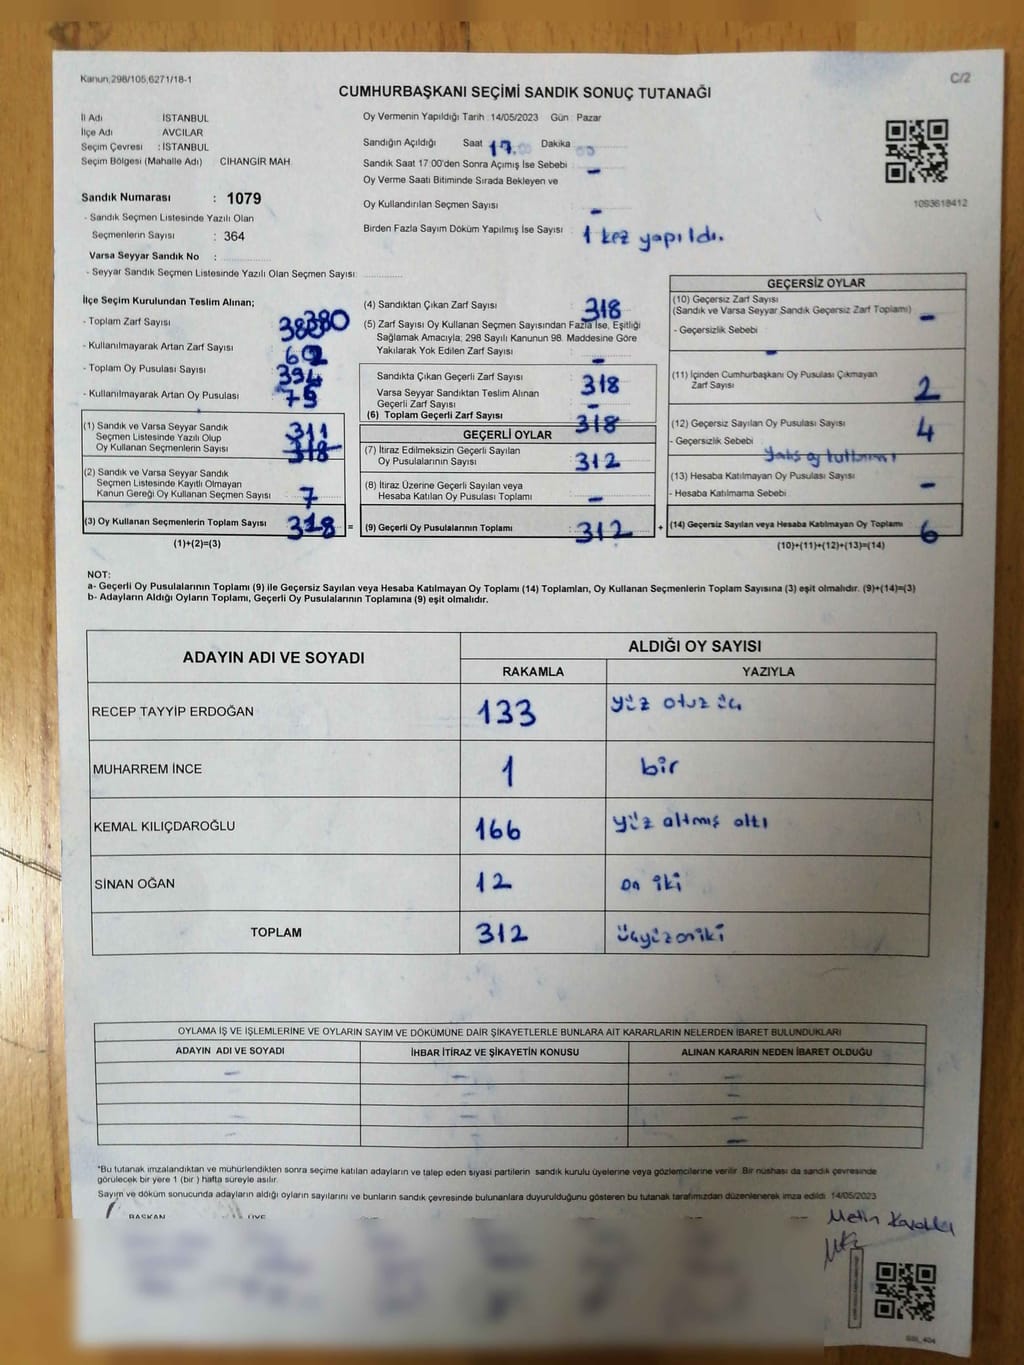 Kanun,298/105,6271/18-1
C/2
CUMHURBAŞKANI SEÇİMİ SANDIK SONUÇ TUTANAĞI
İl Adı İSTANBUL
İlçe Adı AVCILAR
Seçim Çevresi : İSTANBUL
Seçim Bölgesi (Mahalle Adı) CİHANGİR MAH.
Sandık Numarası : 1079
- Sandık Seçmen Listesinde Yazılı Olan
Seçmenlerin Sayısı : 364
Varsa Seyyar Sandık No :
- Seyyar Sandık Seçmen Listesinde Yazılı Olan Seçmen Sayısı
Oy Vermenin Yapıldığı Tarih :14/05/2023 Gün : Pazar
Sandığın Açıldığı Saat 17 Dakika
Sandık Saat 17:00'den Sonra Açımış İse Sebebi –
Oy Verme Saati Bitiminde Sırada Bekleyen ve
Oy Kullandırılan Seçmen Sayısı –
Birden Fazla Sayım Döküm Yapılmış İse Sayısı 1 kez yapıldı.
1093618412
İlçe Seçim Kurulundan Teslim Alınan;
- Toplam Zarf Sayısı 380
- Kullanılmayarak Artan Zarf Sayısı
- Toplam Oy Pusulası Sayısı 394
- Kullanılmayarak Artan Oy Pusulası
(1) Sandık ve Varsa Seyyar Sandık
Seçmen Listesinde Yazılı Olup
Oy Kullanan Seçmenlerin Sayısı 311 318
(2) Sandık ve Varsa Seyyar Sandık
Seçmen Listesinde Kayıtlı Olmayan
Kanun Gereği Oy Kullanan Seçmen Sayısı 7
(3) Oy Kullanan Seçmenlerin Toplam Sayısı 318 =
(1)+(2)=(3)
(4) Sandıktan Çıkan Zarf Sayısı 318
(5) Zarf Sayısı Oy Kullanan Seçmen Sayısından Fazla İse, Eşitliği
Sağlamak Amacıyla; 298 Sayılı Kanunun 98. Maddesine Göre
Yakılarak Yok Edilen Zarf Sayısı –
Sandıkta Çıkan Geçerli Zarf Sayısı 318
Varsa Seyyar Sandıktan Teslim Alınan
Geçerli Zarf Sayısı –
(6) Toplam Geçerli Zarf Sayısı 318
GEÇERLİ OYLAR
(7) İtiraz Edilmeksizin Geçerli Sayılan
Oy Pusulalarının Sayısı 312
(8) İtiraz Üzerine Geçerli Sayılan veya
Hesaba Katılan Oy Pusulası Toplamı –
(9) Geçerli Oy Pusulalarının Toplamı : 312 +
GEÇERSİZ OYLAR
(10) Geçersiz Zarf Sayısı
(Sandık ve Varsa Seyyar Sandık Geçersiz Zarf Toplamı) –
- Geçersizlik Sebebi
–
(11) İçinden Cumhurbaşkanı Oy Pusulası Çıkmayan
Zarf Sayısı 2
(12) Geçersiz Sayılan Oy Pusulası Sayısı 4
- Geçersizlik Sebebi
(13) Hesaba Katılmayan Oy Pusulası Sayısı –
- Hesaba Katılmama Sebebi
(14) Geçersiz Sayılan veya Hesaba Katılmayan Oy Toplamı 6
(10)+(11)+(12)+(13)=(14)
NOT:
a- Geçerli Oy Pusulalarının Toplamı (9) ile Geçersiz Sayılan veya Hesaba Katılmayan Oy Toplamı (14) Toplamları, Oy Kullanan Seçmenlerin Toplam Sayısına (3) eşit olmalıdır. (9)+(14)=(3)
b- Adayların Aldığı Oyların Toplamı, Geçerli Oy Pusulalarının Toplamına (9) eşit olmalıdır.
ADAYIN ADI VE SOYADI ALDIĞI OY SAYISI
RAKAMLA YAZIYLA
RECEP TAYYİP ERDOĞAN 133 yüz otuz üç
MUHARREM İNCE 1 bir
KEMAL KILIÇDAROĞLU 166 yüz altmış altı
SİNAN OĞAN 12 on iki
TOPLAM 312 üçyüzoniki
OYLAMA İŞ VE İŞLEMLERİNE VE OYLARIN SAYIM VE DÖKÜMÜNE DAİR ŞİKAYETLERLE BUNLARA AİT KARARLARIN NELERDEN İBARET BULUNDUKLARI
ADAYIN ADI VE SOYADI İHBAR İTİRAZ VE ŞİKAYETİN KONUSU ALINAN KARARIN NEDEN İBARET OLDUĞU
– – –
– – –
– – –
– – –
*Bu tutanak imzalandıktan ve mühürlendikten sonra seçime katılan adayların ve talep eden siyasi partilerin sandık kurulu üyelerine veya gözlemcilerine verilir. Bir nüshası da sandık çevresinde
görülecek bir yere 1 (bir ) hafta süreyle asılır.
Sayım ve döküm sonucunda adayların aldığı oyların sayılarını ve bunların sandık çevresinde bulunanlara duyurulduğunu gösteren bu tutanak tarafımızdan düzenlenerek imza edildi. 14/05/2023
BAŞKAN ÜYE
Metin